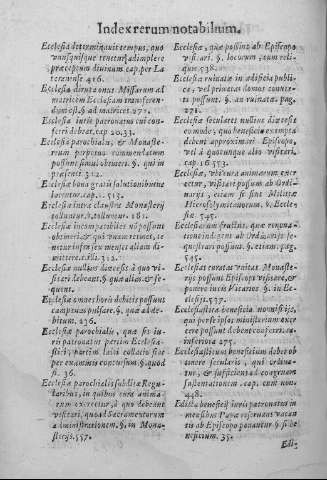 Index rerum notabilium.
Ecclesia determinauit tempus, quo
vnusquisque tenetur adimplere
præceptum diuinum cap. per La
teranense 416.
Ecclesia dirutæ onus Missarum ad
matricem Ecclesiam transferen-
dum est. § ad matrices 271.
Ecclesia iuris patronatus cui con-
ferri debeat. cap. 20.33.
Ecclesia parochialis, & Monaste-
rium perpetuò commendatum
possunt simul obtineri. §. qui in
præsenti. 312.
Ecclesia bona gratis solutionibus ne
locentur. cap. 513.
Ecclesia intra claustra Monasterij
collantur. 181.
Ecclesia incompatibiles nō possunt
obtineri, & qui vnam retinet, te-
netur infra sex menses aliam di-
mittere. 312.
Ecclesia nullius diœcesis à quo vi-
sitari debeant. § quæ aliàs. & se-
quent.
Ecclesia omnes horis debitis possunt
campanas pulsare. §. quæ ad de-
bitum. 236.
Ecclesia parochialis, quæ est iu-
ris patronatus partim Ecclesia-
stici, partim laici collatio fiat
per examinis concursum §. quod
si. 36.
Ecclesia parochialis subdita Regu-
laribus, in quibus cura anima-
rum exercetur, à quo debeant
visitari, quoad Sacramentorum
administrationem. §. in Mona-
sterijs. 557.
Ecclesia, quæ possint ab Episcopo
visitari. §. locorum, cum reli-
quis 538.
Ecclesia ruinatæ in ædificia publi-
ce, vel priuatas domos conuer-
ti possint. §. au ruinatæ. pag.
271.
Ecclesia seculares nullius diœcesis
commodo, quo beneficia exempta
debent approximari Episcopo,
vel à quocunque alio visitari.
cap. 16 553.
Ecclesia, vbi cura animarum exer-
cetur, visitari possunt ab Ordi-
narijs, etiam si sint Militiæ
Hierosolymitanorum. §. Eccle-
sia. 545.
Ecclesiarum fructus, quæ repara-
tione indigent ab Ordinarijs se-
questrari possunt. §. etiam. pag.
545.
Ecclesia curatas vnitas Monaste-
rijs possunt Episcopi visitare, &
ponere in eis Vicarios. §. in Ec-
clesijs. 537.
Ecclesiastica beneficia non nisi ijs,
qui per se ipsos ministerium exer
cere possunt debent conferri. ex
inferiora 275.
Ecclesiasticum beneficium debet ob
tinere secularis, qui ordina-
tur, & sufficiens ad congruam
sustentationem. cap. cum non.
448.
Edicta beneficij iuris patronatus in
mensibus Papæ reseruatis vacan
tis ab Episcopo ponantur §. si be
neficium. 35.
Edi-